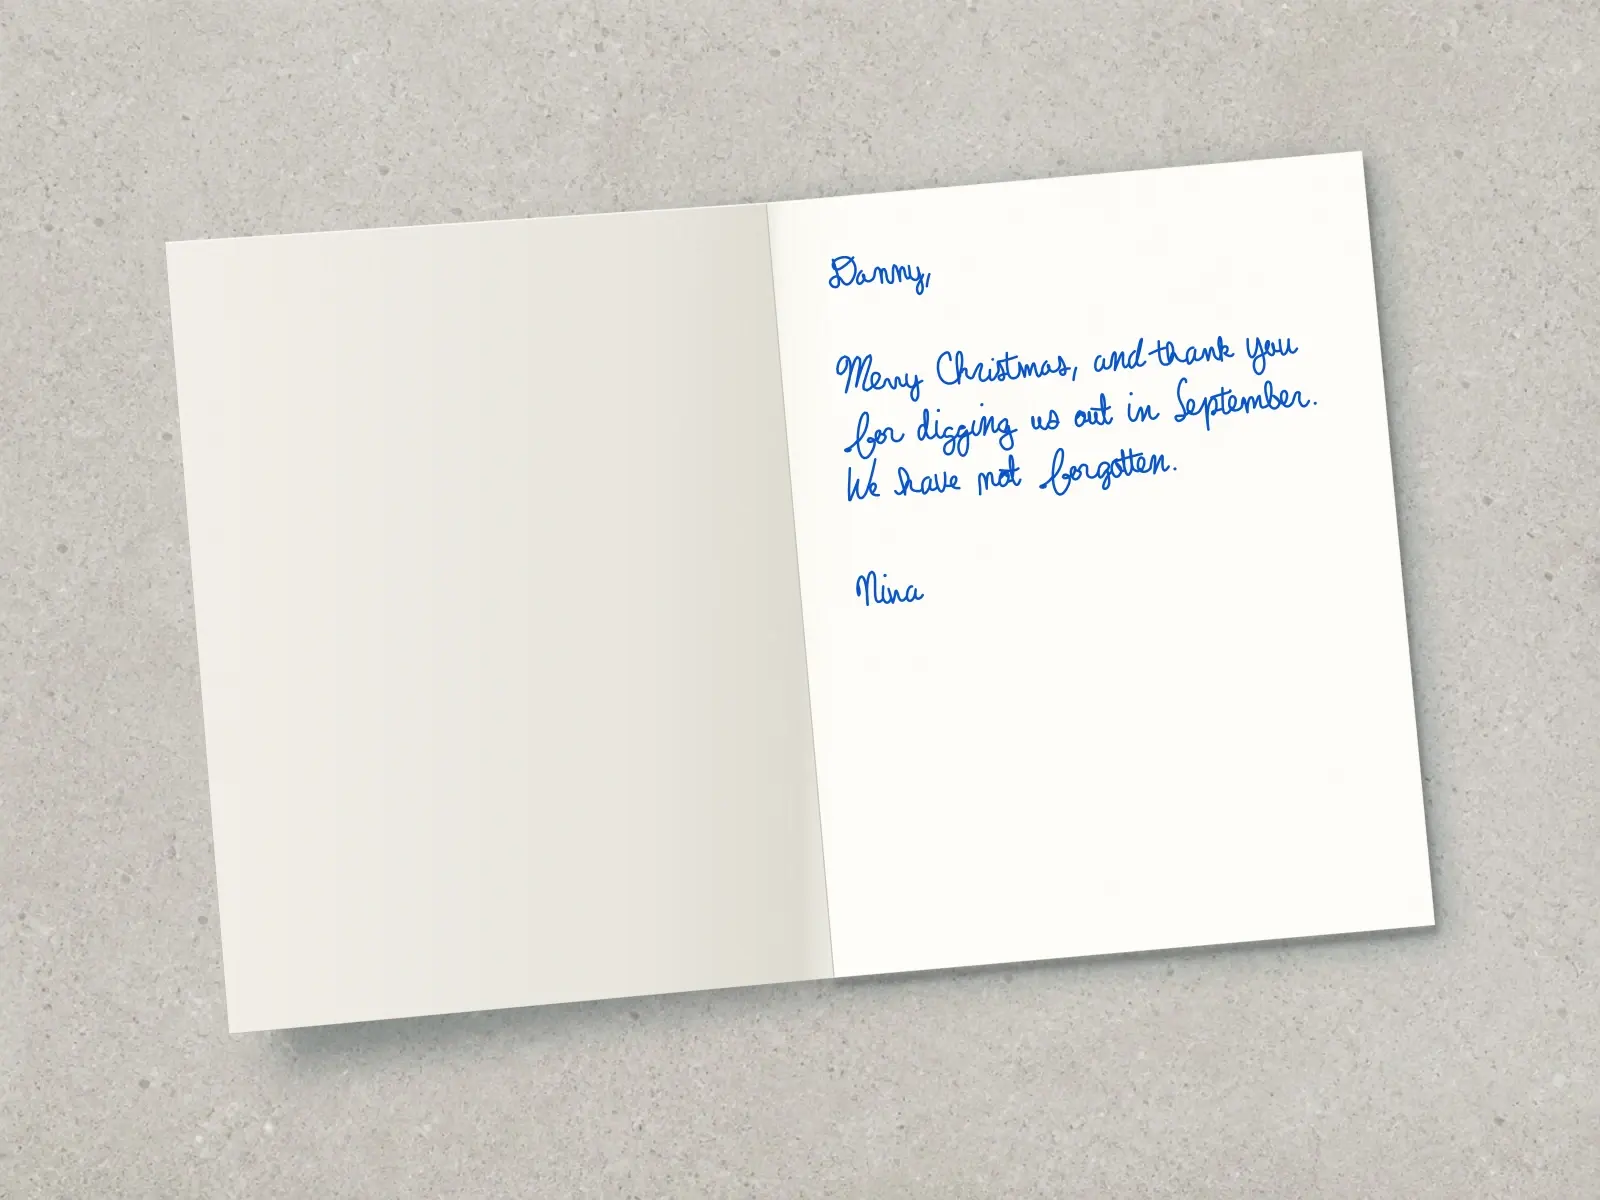 Danny,
Merry Christmas, and thank you
for digging us out in September.
We have not forgotten.
Nina